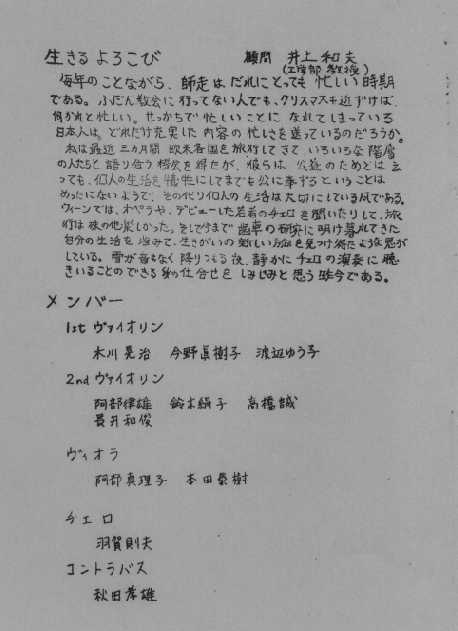 生きるよろこび
顧問 井上和夫
(工学部教授)
毎年のことながら、師走はだれにとっても忙しい時期
である。ふだん教会に行ってない人でも、クリスマスも近づけば、
何かと忙しい。せっかちで忙しいことになれてしまっている
日本人は、どれだけ充実した内容の忙しさを送っているのだろうか。
私は最近三カ月間欧米各国を旅行してきていろいろな階層
の人たちと語り合う機会を得たが、彼らは公益のためとは言
っても、個人の生活を犠牲にしてまでも公に奉するということは
めったにないようで、その代り個人の生活は大切にしている風である。
ウィーンでは、オペラや、デビューした若者のチェロを聞いたりして、旅
行は夜の他楽しかった。そして今まで歯車の研究に明け暮れてきた
自分の生活を省みて、生きがいの新しい方向を見つけ得たような感が
している。雪が音もなく降りつもる夜、静かにチェロの演奏に聴
きいることのできる身の仕合せをしみじみと思う昨今である。
メンバー
1st ヴァイオリン
木川晃治 今野眞樹子 渡辺ゆう子
2nd ヴァイオリン
阿部律雄 鈴木絹子 高橋誠
長井和俊
ヴィオラ
阿部真理子 本田泰樹
チェロ
羽賀則夫
コントラバス
秋田孝雄